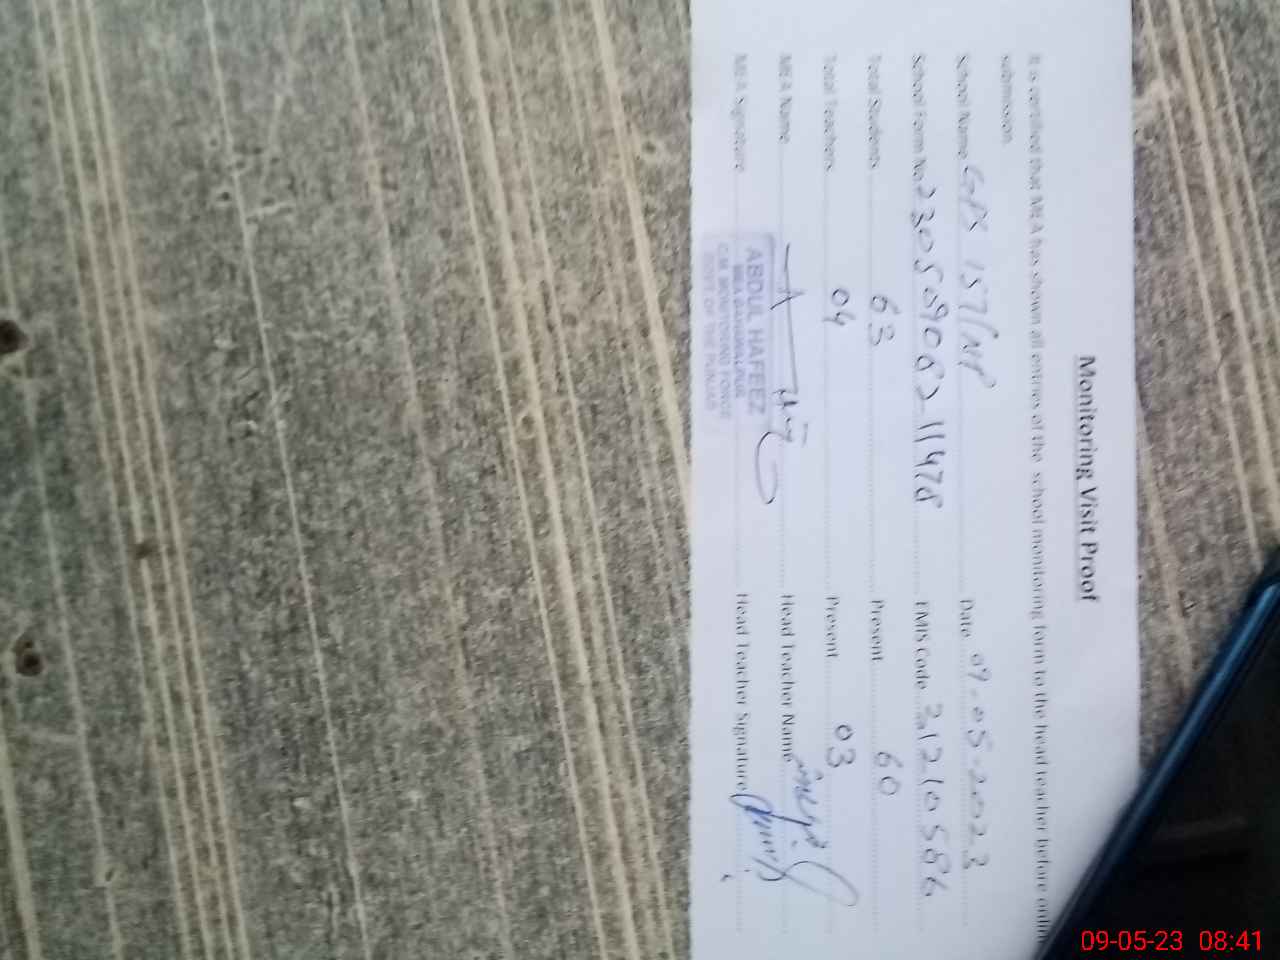 Monitoring Visit Proof
It is certified that MEA has shown all entries of the school monitoring form to the head teacher before onlin
submission.
School Name GPS 157/NP Date 09-05-2023
School Form No. 230509062 11478 EMIS Code 31210586
Total Students 63 Present 60
Total Teachers 04 Present 03
MEA Name Head Teacher Name
MEA Signature Head Teacher Signature
ABDUL HAFEEZ
MEA BAHAWALPUR
C.M. MONITORING FORCE
GOVT OF THE PUNJAB
09-05-23 08:41